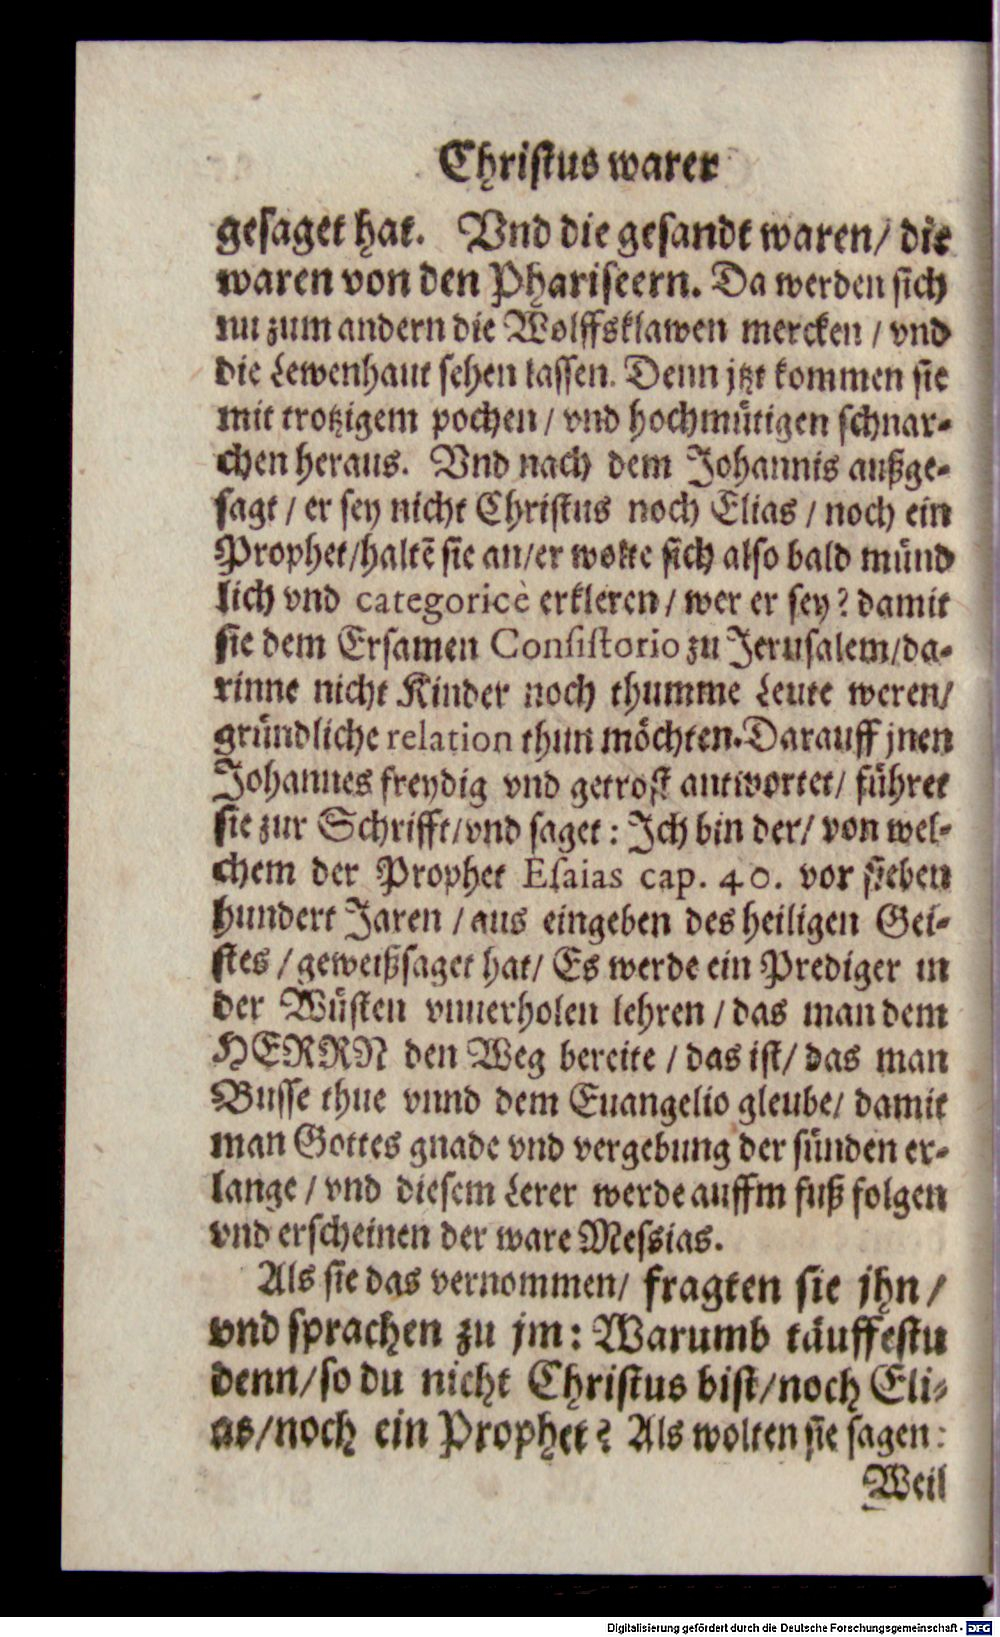 Christus warer
gesaget hat. Vnd die gesandt waren/ die
waren von den Phariseern. Da werden sich
nu zum andern die Wolffsklawen mercken / vnd
die Lewenhaut sehen lassen. Denn jtzt kommen sie
mit trotzigem pochen / vnd hochmütigen schnar-
chen heraus. Vnd nach dem Johannis außge-
sagt / er sey nicht Christus noch Elias / noch ein
Prophet/haltē sie an/er wolte sich also bald münd
lich vnd categoricè erkleren / wer er sey? damit
sie dem Ersamen Consistorio zu Jerusalem/da-
rinne nicht Kinder noch thumme Leute weren/
gründliche relation thun möchten. Darauff jnen
Johannes freydig vnd getrost antwortet/ führet
sie zur Schrifft/vnd saget: Ich bin der/ von wel-
chem der Prophet Esaias cap. 40. vor sieben
hundert Jaren / aus eingeben des heiligen Gei-
stes / geweißsaget hat/ Es werde ein Prediger in
der Wüsten vnuerholen lehren / das man dem
HERRN den Weg bereite / das ist/ das man
Busse thue vnnd dem Euangelio gleube/ damit
man Gottes gnade vnd vergebung der sünden er-
lange / vnd diesem Lerer werde auffm fuß folgen
vnd erscheinen der ware Messias.
Als sie das vernommen/ fragten sie jhn /
vnd sprachen zu jm: Warumb täuffestu
denn/so du nicht Christus bist/noch Eli-
as/noch ein Prophet? Als wolten sie sagen:
Weil
Digitalisierung gefördert durch die Deutsche Forschungsgemeinschaft - DFG